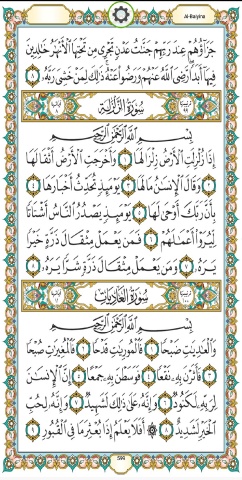 Al-Bayina
جَزَآؤُهُمْ عِندَ رَبِّهِمْ جَنَّٰتُ عَدْنٍ تَجْرِى مِن تَحْتِهَا ٱلْأَنْهَٰرُ خَٰلِدِينَ
فِيهَآ أَبَدًا رَّضِىَ ٱللَّهُ عَنْهُمْ وَرَضُوا۟ عَنْهُ ذَٰلِكَ لِمَنْ خَشِىَ رَبَّهُۥ ٨
سُورَةُ الزَّلْزَلَةِ
بِسْمِ ٱللَّهِ ٱلرَّحْمَٰنِ ٱلرَّحِيمِ
إِذَا زُلْزِلَتِ ٱلْأَرْضُ زِلْزَالَهَا ١ وَأَخْرَجَتِ ٱلْأَرْضُ أَثْقَالَهَا
٢ وَقَالَ ٱلْإِنسَٰنُ مَا لَهَا ٣ يَوْمَئِذٍ تُحَدِّثُ أَخْبَارَهَا ٤
بِأَنَّ رَبَّكَ أَوْحَىٰ لَهَا ٥ يَوْمَئِذٍ يَصْدُرُ ٱلنَّاسُ أَشْتَاتًا
لِّيُرَوْا۟ أَعْمَٰلَهُمْ ٦ فَمَن يَعْمَلْ مِثْقَالَ ذَرَّةٍ خَيْرًا
يَرَهُۥ ٧ وَمَن يَعْمَلْ مِثْقَالَ ذَرَّةٍ شَرًّا يَرَهُۥ ٨
سُورَةُ العَادِيَاتِ
بِسْمِ ٱللَّهِ ٱلرَّحْمَٰنِ ٱلرَّحِيمِ
وَٱلْعَٰدِيَٰتِ ضَبْحًا ١ فَٱلْمُورِيَٰتِ قَدْحًا ٢ فَٱلْمُغِيرَٰتِ صُبْحًا
٣ فَأَثَرْنَ بِهِۦ نَقْعًا ٤ فَوَسَطْنَ بِهِۦ جَمْعًا ٥ إِنَّ ٱلْإِنسَٰنَ
لِرَبِّهِۦ لَكَنُودٌ ٦ وَإِنَّهُۥ عَلَىٰ ذَٰلِكَ لَشَهِيدٌ ٧ وَإِنَّهُۥ لِحُبِّ
ٱلْخَيْرِ لَشَدِيدٌ ٨ ۞ أَفَلَا يَعْلَمُ إِذَا بُعْثِرَ مَا فِى ٱلْقُبُورِ ٩
599